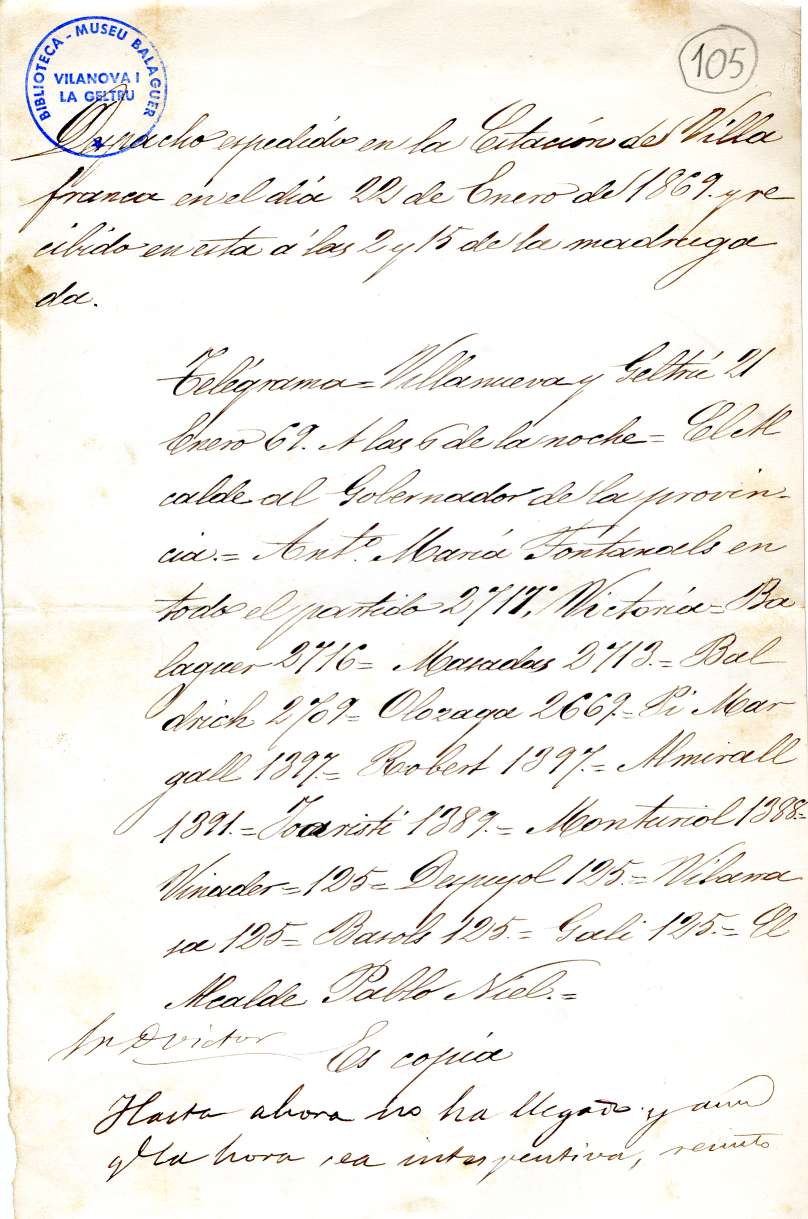 BIBLIOTECA - MUSEU BALAGUER
VILANOVA I
LA GELTRU
105
Despacho espedido en la Estación de Villa
franca en el dia 22 de Enero de 1869. y re
cibido en esta á las 2 y 15 de la madruga
da.
Telégrama = Villanueva y Geltrú 21
Enero 69. A las 6 de la noche = El Al
calde al Gobernador de la provin-
cia. = Ant.º María Fontanals en
todo el partido 2717. Victoria = Ba
laguer 2716 = Masadas 2713. = Bal
drich 2709 = Olozaga 2669 = Pi Mar
gall 1397. = Robert 1397. = Almirall
1391. = Joaristi 1389. = Monturiol 1388. =
Vinader = 125 = Despujol 125. = Vilarra
sa 125 = Basols 125. = Gali 125. = El
Alcalde Pablo Niel. =
Sr. D Victor
Es copia
Hasta ahora no ha llegado y aun
q.e la hora sea intespentiva, remito